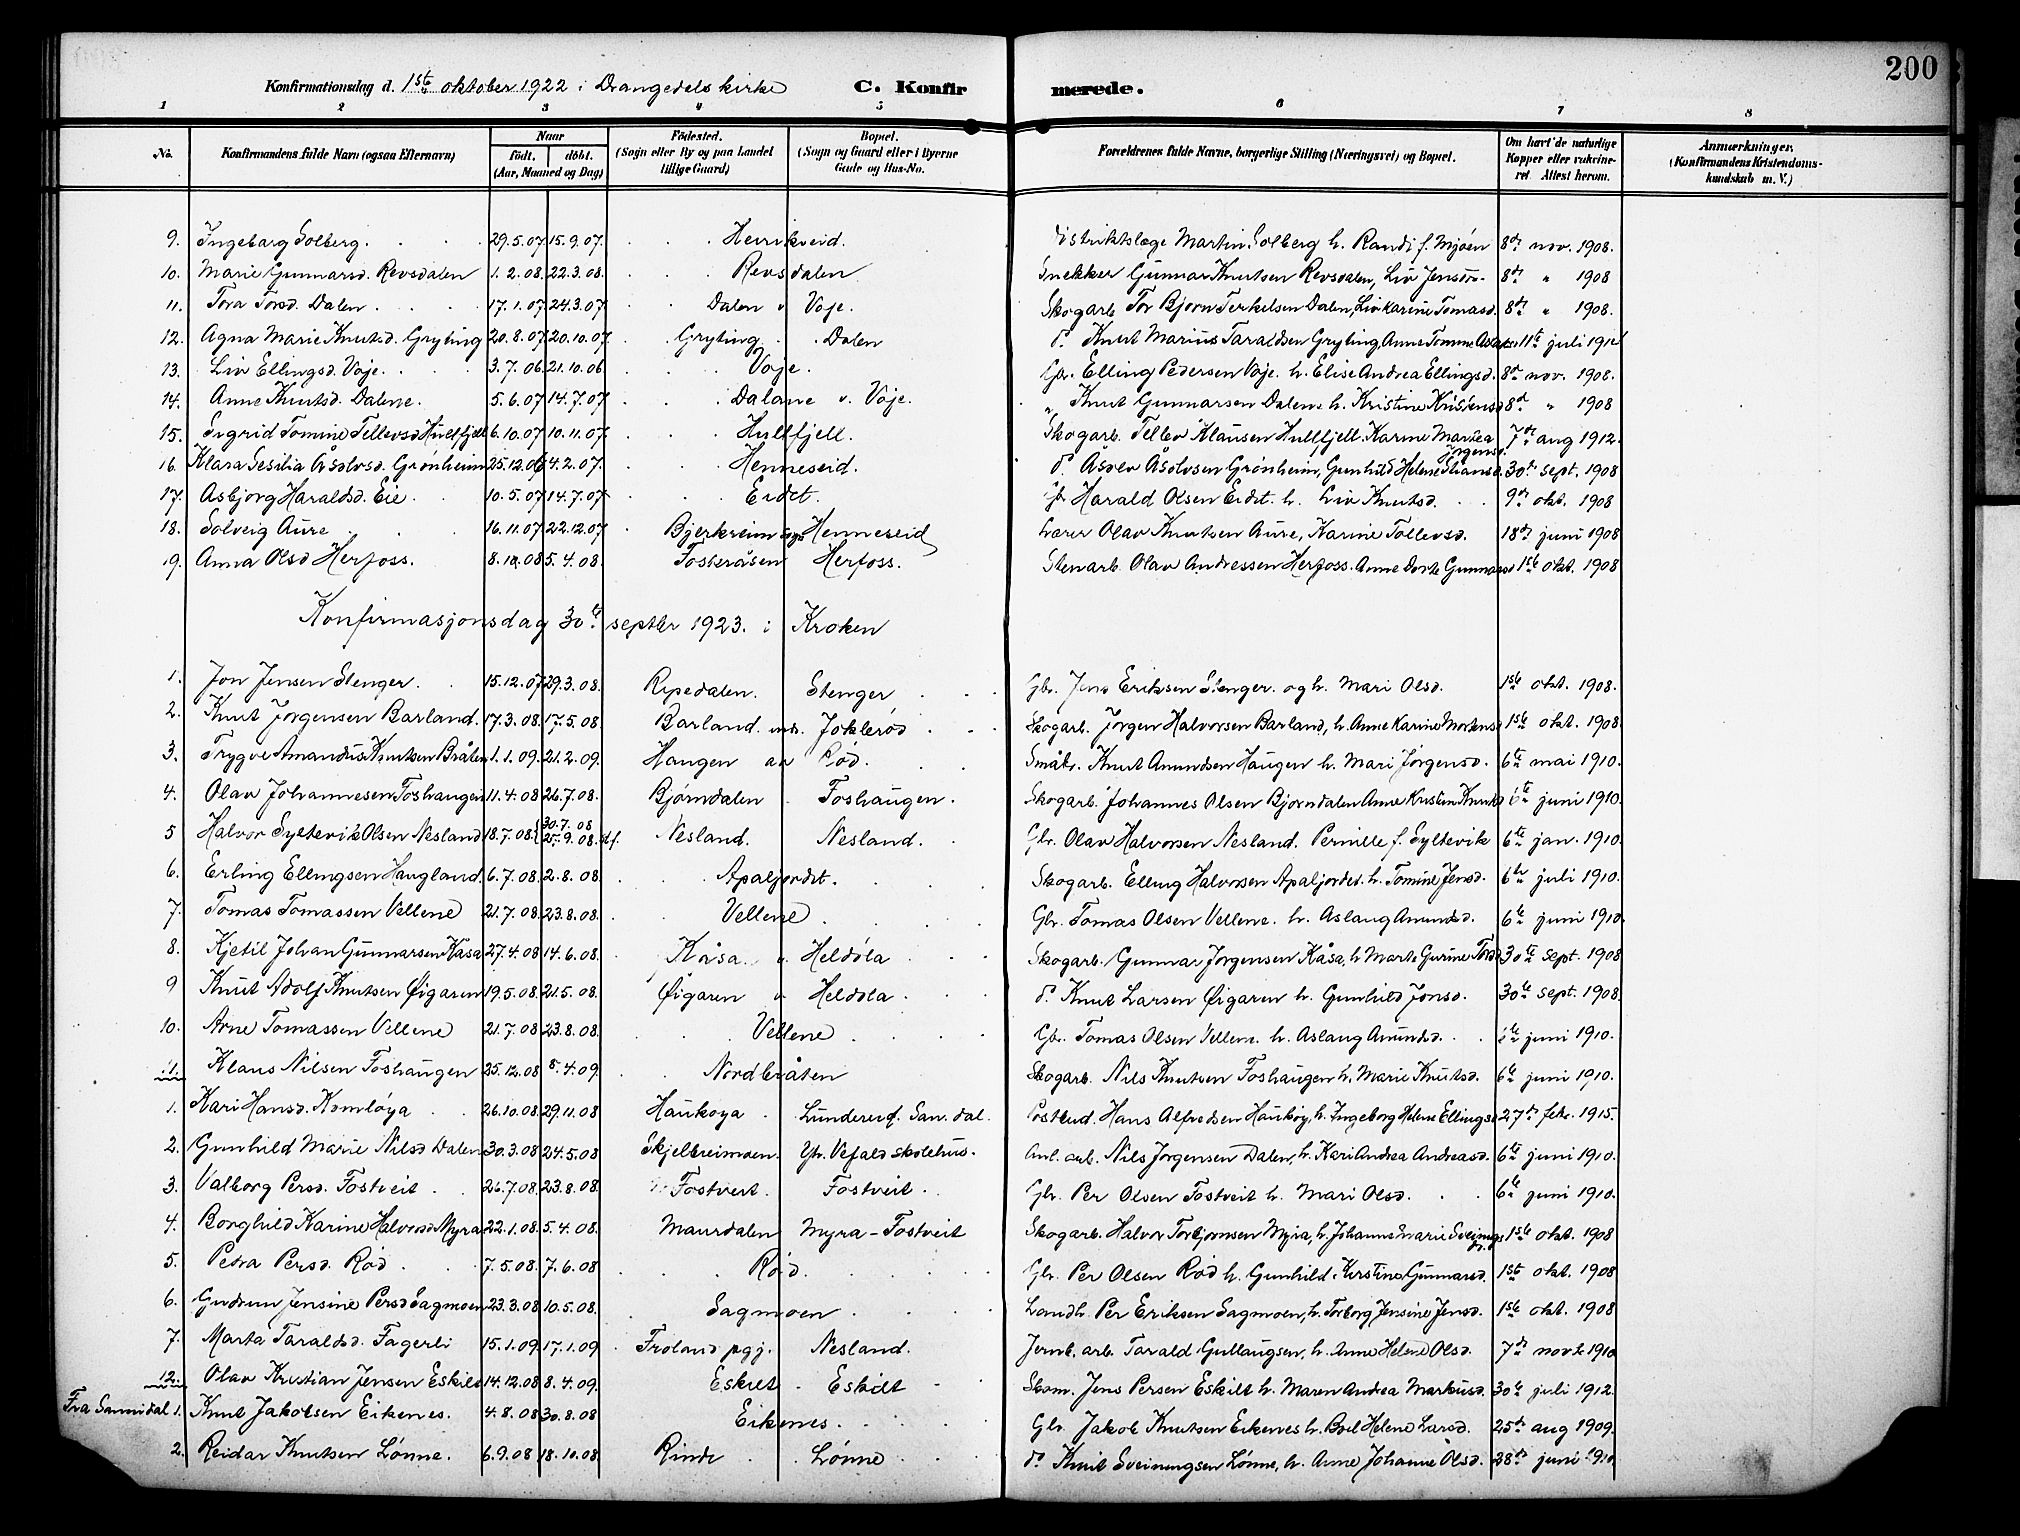 200
Konfirmationsdag d. 1ste oktober 1922 i Drangedals kirke C. Konfirmerede.
1 2 3 4 5 6 7 8
No. Konfirmandens fulde Navn (ogsaa Efternavn) Naar født, døbt. (Aar, Maaned og Dag) Fødested. (Sogn eller By og paa Landet tillige Gaard) Bopæl. (Sogn og Gaard eller i Byerne Gade og Hus-No. Forældrenes fulde Navne, borgerlige Stilling (Næringsvei) og Bopæl. Om havt de naturlige Kopper eller vakcineret Attest herom. Anmærkninger. (Konfirmandens Kristendomskundskab m. V.)
9. Ingebarg Solberg. 29.5.07 15.9.07. Henrikveid. Distriktslæge Martin Solberg h. Randi f. Mjøen 8de nov. 1908.
10. Marie Gunnarsd. Revsdalen 1.2.08. 22.3.08. Revsdalen Snekker Gunnar Knutsen Revsdalen, Liv Jensdr. 8de " 1908
11. Tora Torsd. Dalen 17.1.07 24.3.07 Dalen u Voje. Skogarb. Tor Bjørn Terkelsen Dalen, Liv Karine Tomasd. 8de " 1908.
12. Agna Marie Knutsd. Gryting 20.8.07 20.10.07. Gryting Dalen d. Knut Marius Taraldsen Gryting, Anne Tomine 11te juli 191
13. Liv Ellingsd. Voje. 3.7.06 21.10.06. Voje. Gbr. Elling Pedersen Voje. h. Elise Andrea Ellingsd. 8de nov. 1908.
14. Anne Knutsd. Dalene. 5.6.07 14.7.07 Dalane u. Voje. " Knut Gunnarsen Dalene h. Kristine Kristensd 8de " 1908
15. Sigrid Tomine Tellevsd Hullfjell 6.10.07 10.11.07. Hullfjell. Skogarb. Tellev Klausen Hullfjell. Karine Marsea Jørgensd. 7de aug 1912.
16. Klara Sesilia Åsolvsd. Grønheim 25.12.06 4.2.07. Henneseid. d. Åsvev Åsolvsen Grønheim, Gunhild Helene 30te sept. 1908
17. Asbjørg Haraldsd. Eie 10.5.07 14.7.07 Eidet. Gbr Harald Olsen Eidet. h. Liv Knutsd. 9de okt. 1908
18. Solveig Aure 16.11.07 22.12.07 Bjerkreim Henneseid Lærer Olav Knutsen Aure, Karine Tollevsd. 18de juni 1908
19. Anna Olsd Herfoss. 8.10.08 5.4.08. Fosteråsen Herfoss. Stenarb. Olav Andressen Herfoss. Anne Dorte Gunnarsd 1ste okt. 1908
Konfirmasjonsdag 30te septbr 1923. i Kroken
1. Jon Jensen Stenger. 15.12.07 29.3.08. Ripedalen. Stenger Gbr. Jens Eriksen Stenger. og h. Mari Olsd. 1ste okt. 1908.
2. Knut Jørgensen Barland. 17.3.08. 17.5.08 Barland. und. Joklerød Skogarb. Jørgen Halvorsen Barland, h. Anne Karine Mortensd 1ste okt. 1908.
3. Trygve Amandus Knutsen Bråten 1.1.09. 21.2.09. Haugen av Rød. Småbr. Knut Amundsen Haugen h. Mari Jørgensd. 6te mai 1910.
4. Olav Johannesen Foshaugen 11.4.08 26.7.08. Bjørndalen Foshaugen. Skogarb. Johannes Olsen Bjørndalen Anne Kristine Knutsd 6te juni 1910.
5 Halvor Syltevik Olsen Nesland 18.7.08 30.7.08 25.9.08. stf. Nesland. Nesland. Gbr. Olav Halvorsen Nesland. Pernille f. Syltevik 6te jan. 1910.
6. Erling Ellingsen Haugland. 6.7.08 2.8.08. Apaljordet. Skogarb. Elling Halvorsen Apaljordet. h. Tomine Jensd. 6te juli 1910.
7. Tomas Tomassen Vellene 21.7.08 23.8.08. Vellene. Gbr. Tomas Olsen Vellene. h. Aslaug Amundsd. 6te juni 1910.
8. Kjetil Johan Gunnarsen Kåsa 27.4.08 14.6.08. Kåsa. u Heldøla Skogarb. Gunnar Jørgensen Kåsa, h Marte Gurine Torsd 30te sept. 1908
9 Knut Adolf Knutsen Øigaren 19.5.08. 21.5.08. Øigaren u Heldøla d. Knut Larsen Øigaren h. Gunhild Jonsd. 30te sept. 1908.
10. Arne Tomassen Vellene 21.7.08 23.8.08. Vellene Gbr. Tomas Olsen Vellene h. Aslaug Amundsd. 6te juni 1910.
11. Klaus Nilsen Foshaugen 25.12.08 8.4.09. Nordbråten Skogarb. Nils Knutsen Foshaugen h. Marie Knutsd. 6te juni 1910.
1. Kari Hansd. Komløya 26.10.08 29.11.08 Haukøya Lunderud. San. dal. Postbud. Hans Alfredsen Haukøy, h. Ingeborg Helene Ellingsd 27de febr. 1915.
2. Gunhild Marie Nilsd Dalen 30.3.08 24.5.08 Skjelbreimoen. Yt. Vefald skolehus. Anl. arb. Nils Jørgensen Dalen, h. Kari Andrea Andreasd. 6te juni 1910.
3. Valborg Persd. Fostveit 26.7.08. 23.8.08. Fostveit. Fostveit. Gbr. Per Olsen Fostveit h. Mari Olsd. 6te juni 1910.
4. Borghild Karine Halvorsd Myra 22.1.08. 5.4.08. Maurdalen Myra - Fostveit Skogarb. Halvor Torbjørnsen Myra, h. Johanne Marie Sveinungsdr. 1ste okt. 1908
5. Petra Persd. Rød 7.5.08. 7.6.08 Rød. Gbr. Per Olsen Rød h. Gunhild Kirstine Gunnarsd. 1ste okt. 1908
6. Gudrun Jensine Persd Sagmoen 23.3.08 10.5.08. Sagmoen Landh. Per Eriksen Sagmoen, h. Torborg Jensine Jensd. 1ste okt. 1908
7. Marta Taraldsd. Fagerli 15.1.09. 17.1.09 Froland pgj. Nesland. Jernb. arb. Tarald Gullaugsen, h. Anne Helene Olsd. 7de nov 1910
12. Olav Kristian Jensen Eskilt 14.12.08 8.4.09. Eskilt Eskilt Skom. Jens Persen Eskilt h. Maren Andrea Markusd. 30te juli 1912.
Fra Sannidal 1. Knut Jakobsen Eikenes. 4.8.08 30.8.08 Eikenes. Gbr. Jakob Knutsen Eikenes h. Boel Helene Larsd. 25de aug 1909.
2. Reidar Knutsen Lønne. 6.9.08 18.10.08. Rinde Lønne d. Knut Sveinungsen Lønne, h. Anne Johanne Olsd. 28de juni 1910